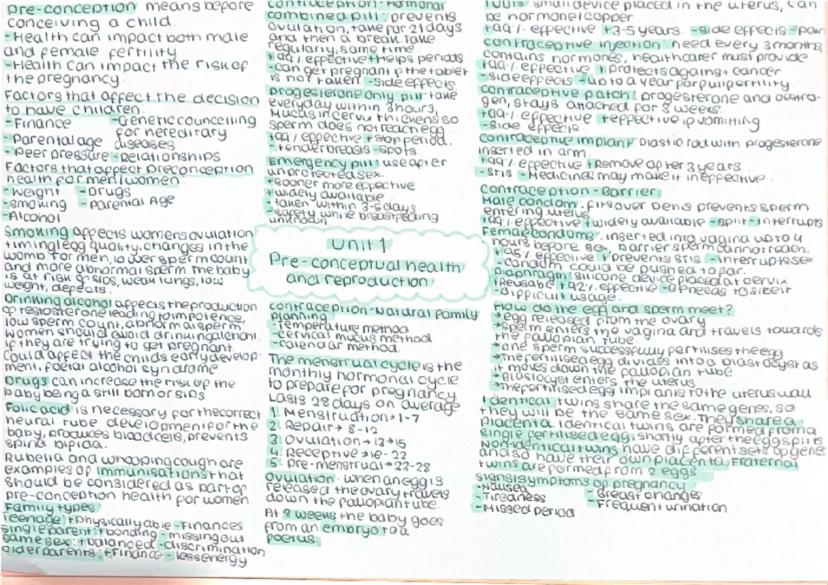 pre-conception means before
conceiving a child.
-Health can impact both male
and female fertility
-Health can impact the risk of
the pregnancy.
Factors that affect the decision
to have children.
-Finance -Genetic councelling
for hereditary
-Parental age diseases
-Peer pressure -relationships
Factors that affect preconception
health for men/women
-Weight -Drugs
-Smoking -Parental Age
-Alcohol
Smoking affects womens ovulation
timing/egg quality, changes in the
womb for men, lower sperm count
and more abnormal sperm the baby
is at risk of sids, weak lungs, low
weight, defects.
Drinking alcohol affects the production
of testosterone leading to impotence,
low sperm count, abnormal sperm,
women should avoid drinking alcohol
if they are trying to get pregnant
could affect the childs early develop-
ment, foetal alcohol syndrome
Drugs can increase the risk of the
baby being a still born or sids
Folic acid is necessary for the correct
neural tube development for the
baby, produces blood cells, prevents
spina bifida.
Rubella and whooping cough are
examples of immunisations that
should be considered as part of
pre-conception health for women.
Family types:
Teenage: +physically able -Finances
single parent: +bonding -missing out
same sex: +balanced -discrimination
older parents: +Finance -less energy
contraception-Hormonal
combined pill: prevents
ovulation, take for 21 days
and then a break, take
regularly, same time
+99% effective +helps periods
-can get pregnant if the tablet
is not taken -side effects
Progesterone only pill: take
everyday within 3 hours,
Mucus in cervix thickens so
sperm does not reach egg
+99% effective +stop period.
-tender breasts -spots
Emergency pill: use after
unprotected sex.
+sooner more effective
+widely available
-taken within 3-5 days
-safety while breastfeeding
unknown
Unit 1
Pre-conceptual health
and reproduction
contraception-Natural family
planning
-Temperature method
-cervical mucus method
-calendar method.
The menstrual cycle is the
monthly hormonal cycle
to prepare for pregnancy
Lasts 28 days on average
1. Menstruation→1-7
2. Repair→8-12
3. Ovulation→13→15
4. Receptive→16-22
5. Pre-menstrual→23-28
Ovulation: when an egg is
released the ovary travels
down the fallopian tube.
At 8 weeks the baby goes
from an embryo to a
foetus.
IUD/IUS: small device placed in the uterus, can
be hormone/copper
+99% effective +3-5 years. -side effects -pain
contraceptive injection: need every 3 months,
contains hormones, healthcarer must provide
+99% effective +Protects against cancer
-side effects -up to a year for full fertility
contraceptive patch: progesterone and oestro-
gen, stays attached for 3 weeks
+99% effective +effective if vomiting
-side effects
contraceptive implant: plastic rod with progesterone
inserted in arm.
+99% effective +Remove after 3 years.
-STIs -Medicines may make it ineffective.
Contraception-Barrier
Male condom: fits over penis prevents sperm
entering uterus
+98% effective +widely available -split -interrupts
Female condoms: inserted into vagina up to 4
hours before sex, barrier sperm cannot reach.
+95% effective +prevents STIs -interrupts sex
-condom could be pushed too far.
Diaphragm: silicone device placed at cervix
+Reusable +92% effective -GP needs to size it
-difficult usage.
How do the egg and sperm meet?
→egg released from the ovary
→sperm enters the vagina and travels towards
the fallopian tube
→one sperm successfully fertilises the egg
→the fertilised egg divides into a blastocyst as
it moves down the fallopian tube
→Blastocyst enters the uterus
→the fertilised egg implants to the uterus wall
Identical twins share the same genes, so
they will be the same sex. They share a
placenta. identical twins are formed from a
single fertilised egg, shortly after the egg splits
Non-identical twins have different sets of genes
and so have their own placenta. Fraternal
twins are formed from 2 eggs
signs/symptoms of pregnancy
-Nausea -Breast changes
-Tiredness -Frequent urination
-Missed period